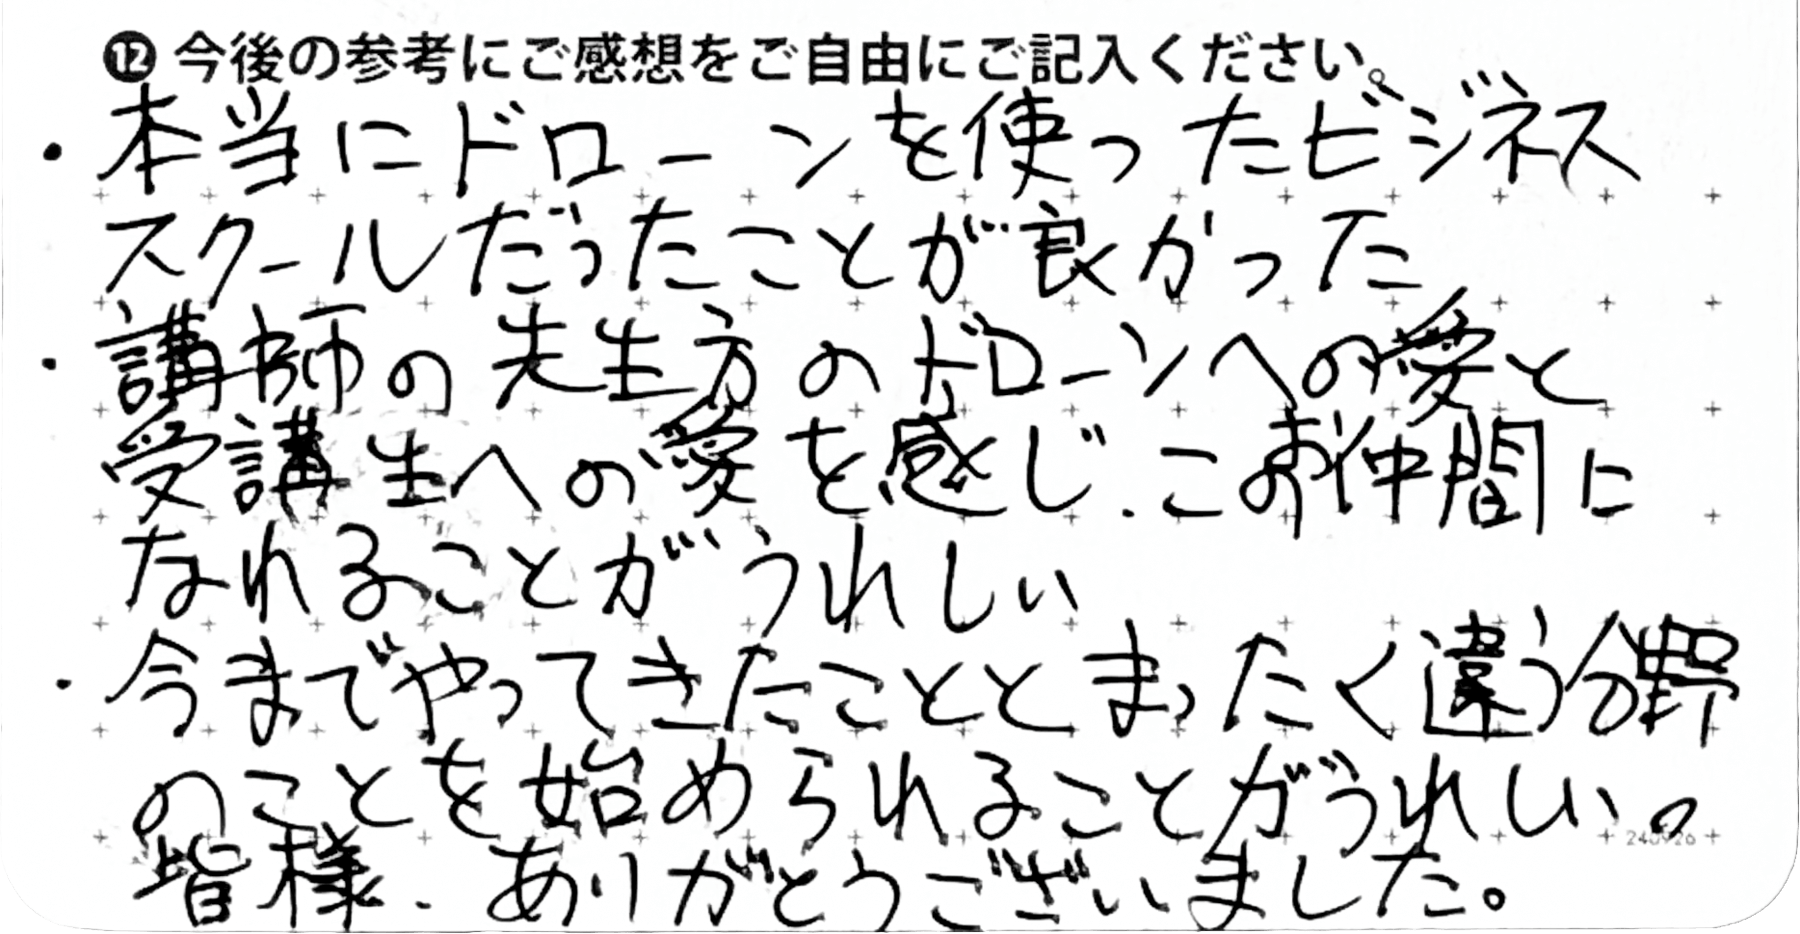 ⓬ 今後の参考にご感想をご自由にご記入ください。
・本当にドローンを使ったビジネス
スクールだったことが良かった
・講師の先生方のドローンへの愛と
受講生への愛を感じ、このお仲間に
なれることがうれしい
・今までやってきたこととまったく違う分野
のことを始められることがうれしい。
240926
皆様、ありがとうございました。